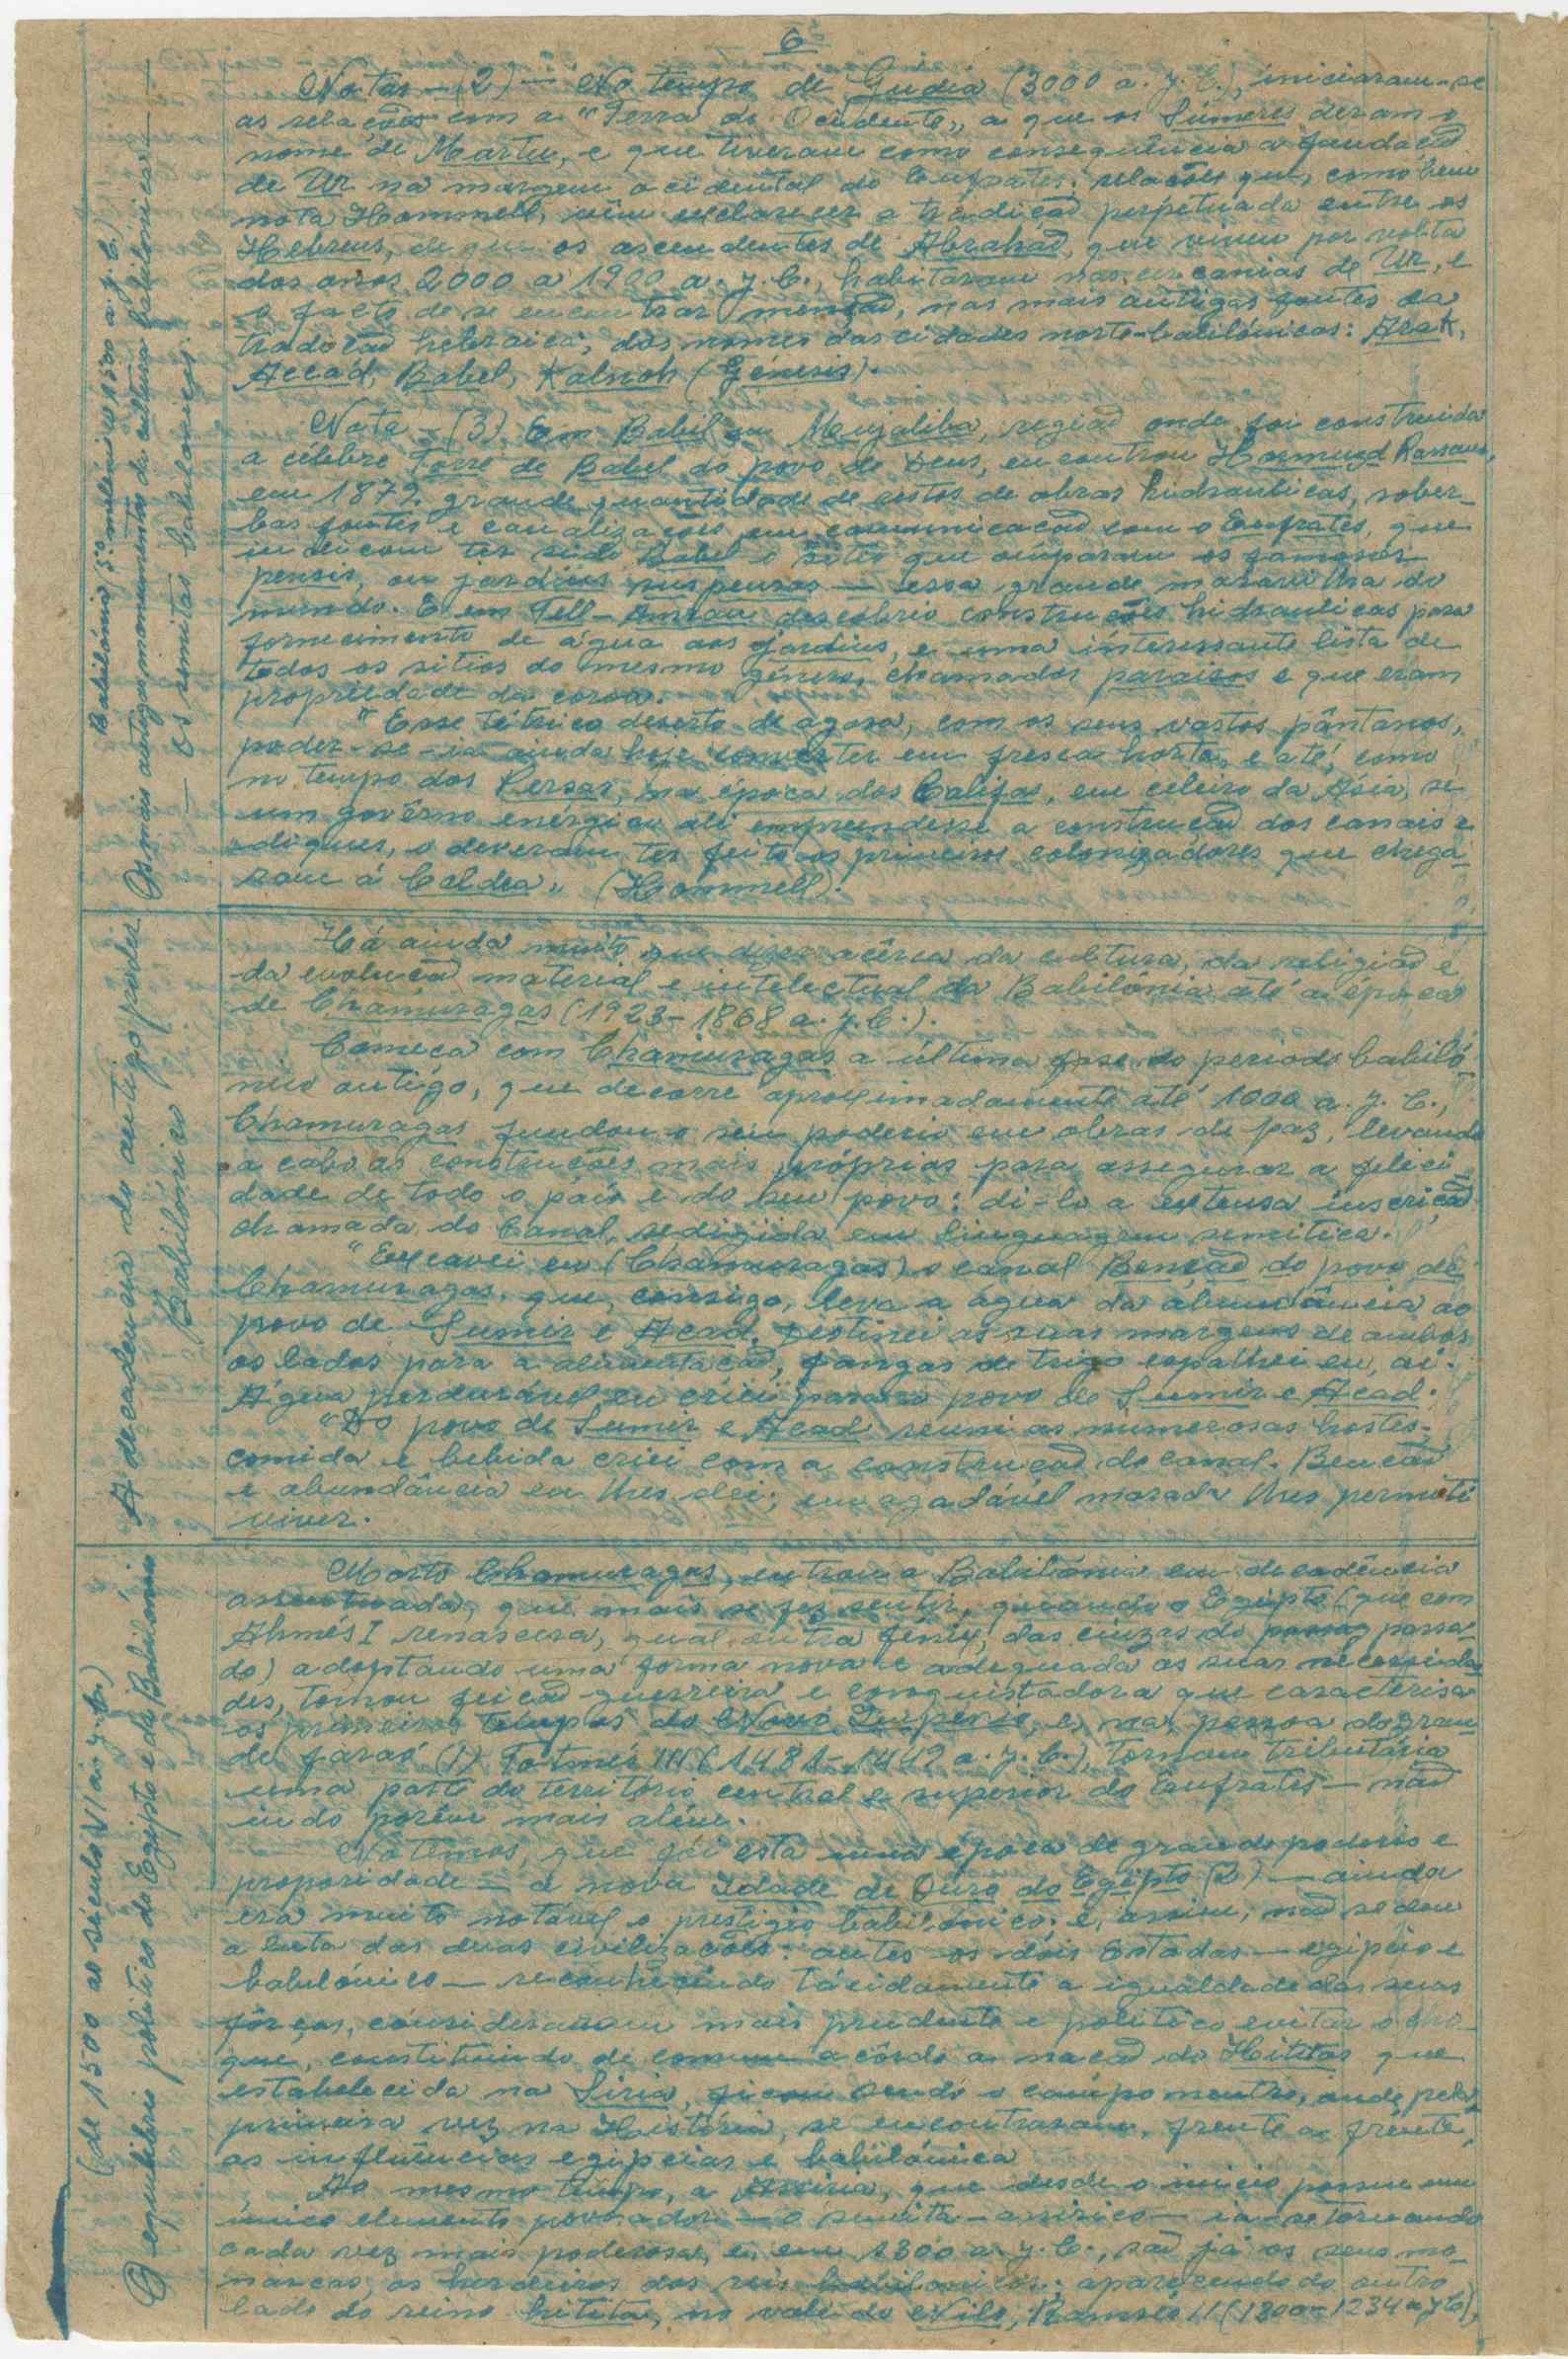 6
Notas - (2) - No tempo de Gudea (3000 a. J. C.), iniciaram-se
as relações com a "Terra do Ocidente", a que os Súmeres deram o
nome de Martu, e que tiveram como consequência a fundação
de Ur na margem ocidental do Eufrates; relações que, como bem
nota Hommell, vêm esclarecer a tradição perpetuada entre os
Hebreus, de que os ascendentes de Abrahão, que viveu por volta
dos anos 2000 a 1900 a. J. C., habitaram nas cercanias de Ur, e
o facto de se encontrar menção, nas mais antigas fontes da
tradição hebraica, dos nomes das cidades norte-babilónicas: Arak,
Accad, Babel, Kalnoh (Génesis).
Nota - (3) Em Babil ou Mujaliba, região onde foi construida
a célebre Torre de Babel do povo de Deus, encontrou Hormuzd Rassam,
em 1879, grande quantidade de restos de obras hidraulicas, sober-
bas fontes e canalizações em comunicação com o Eufrates, que
indicam ter sido Babel o sitio que ocuparam os famosos
pensis, ou jardins suspensos - essa grande maravilha do
mundo. E em Tell-Amran descobriu construções hidraulicas para
fornecimento de água aos jardins, e uma interessante lista de
todos os sitios do mesmo género, chamados paraisos e que eram
propriedade da coroa.
"Esse tétrico deserto de agora, com os seus vastos pântanos,
poder-se-ia ainda hoje converter em fresca horta, e até, como
no tempo dos Persas, na época dos Califas, em celeiro da Ásia, se
um govêrno enérgico ali empreendesse a construção dos canais e
diques, o deveram ter feito os primeiros colonizadores que chega-
ram á Caldea" (Hommell).
Há ainda muito que dizer acêrca da cultura, da religião e
da evolução material e intelectual da Babilónia até a época
de Chamuragas (1923-1868 a. J. C.).
Começa com Chamuragas a última fase do periodo babiló-
nico antigo, que decorre aproximadamente até 1000 a. J. C.,
Chamuragas fundou o seu poderio em obras de paz, levando
a cabo as construções mais próprias para assegurar a felici-
dade de todo o país e do seu povo: di-lo a extensa inscrição
chamada do Canal, redigida em linguagem semitica.
"Excavei eu (Chamuragas) o canal Benção do povo de
Chamuragas, que, consigo, leva a agua da abundância ao
povo de Sumir e Acad. Destinei as suas margens de ambos
os lados para a alimentação, fangas de trigo espalhei eu, aí.
Água perdurável eu criei para o povo de Sumir e Acad.
"Do povo de Sumir e Acad reuni as numerosas hostes;
comida e bebida criei com a construção do canal. Benção
e abundância eu lhes dei; em agadável morada lhes permiti
viver.
Morto Chamuragas, entrou a Babilónia em decadência
acentuada, que mais se fez sentir, quando o Egipto (que com
Ahmés I renascera, qual outra fénix, das cinzas do passa-
do) adoptando uma forma nova e adequada as suas necessida-
des, tomou feição guerreira e conquistadora que caracterisa
os primeiros tempos do Novo Império, e, na pessoa do gran-
de faraó (1) Totmés III (1481-1449 a. J. C.), tornou tributária
uma parte do território central e superior do Eufrates - não
indo porém mais além.
Notemos, que foi esta uma época de grande poderio e
prosporidade - a nova Idade de Ouro do Egipto (2) - ainda
era muito notável o prestigio babilónico; e, assim, não se deu
a luta das duas civilizações: antes os dois Estados - egipcio e
babilónico - reconhecendo tácidamente a igualdade das suas
fôrças, consideraram mais prudente e politico evitar o cho-
que, constituindo de comum acôrdo a nação do Hititas que
estabelecida na Siria, ficou sendo o campo neutro, onde pela
primeira vez na História, se encontraram, frente a frente,
as influências egipcias e babilónica
Ao mesmo tempo, a Assiria, que desde o inicio possue um
único elemento povoador - o semita-assirico - ia-se tornando
cada vez mais poderosa, e, em 1300 a. J. C., são já os seus mo-
narcas, os herdeiros dos reis babilonicos; aparecendo do outro
lado do reino hitita, no vale do Nilo, Ramsés II (1300-1234 a J C),
Babilónia (5º milénio a 1500 a. J. C.)
Os mais antigos monumentos da cultura babilónica -
- os semitas babilónicos.
A decadencia do antigo poder
Babilónico
(de 1500 ao século VI a. J. C.)
O equilibrio politico do Egipto e da Babilónia